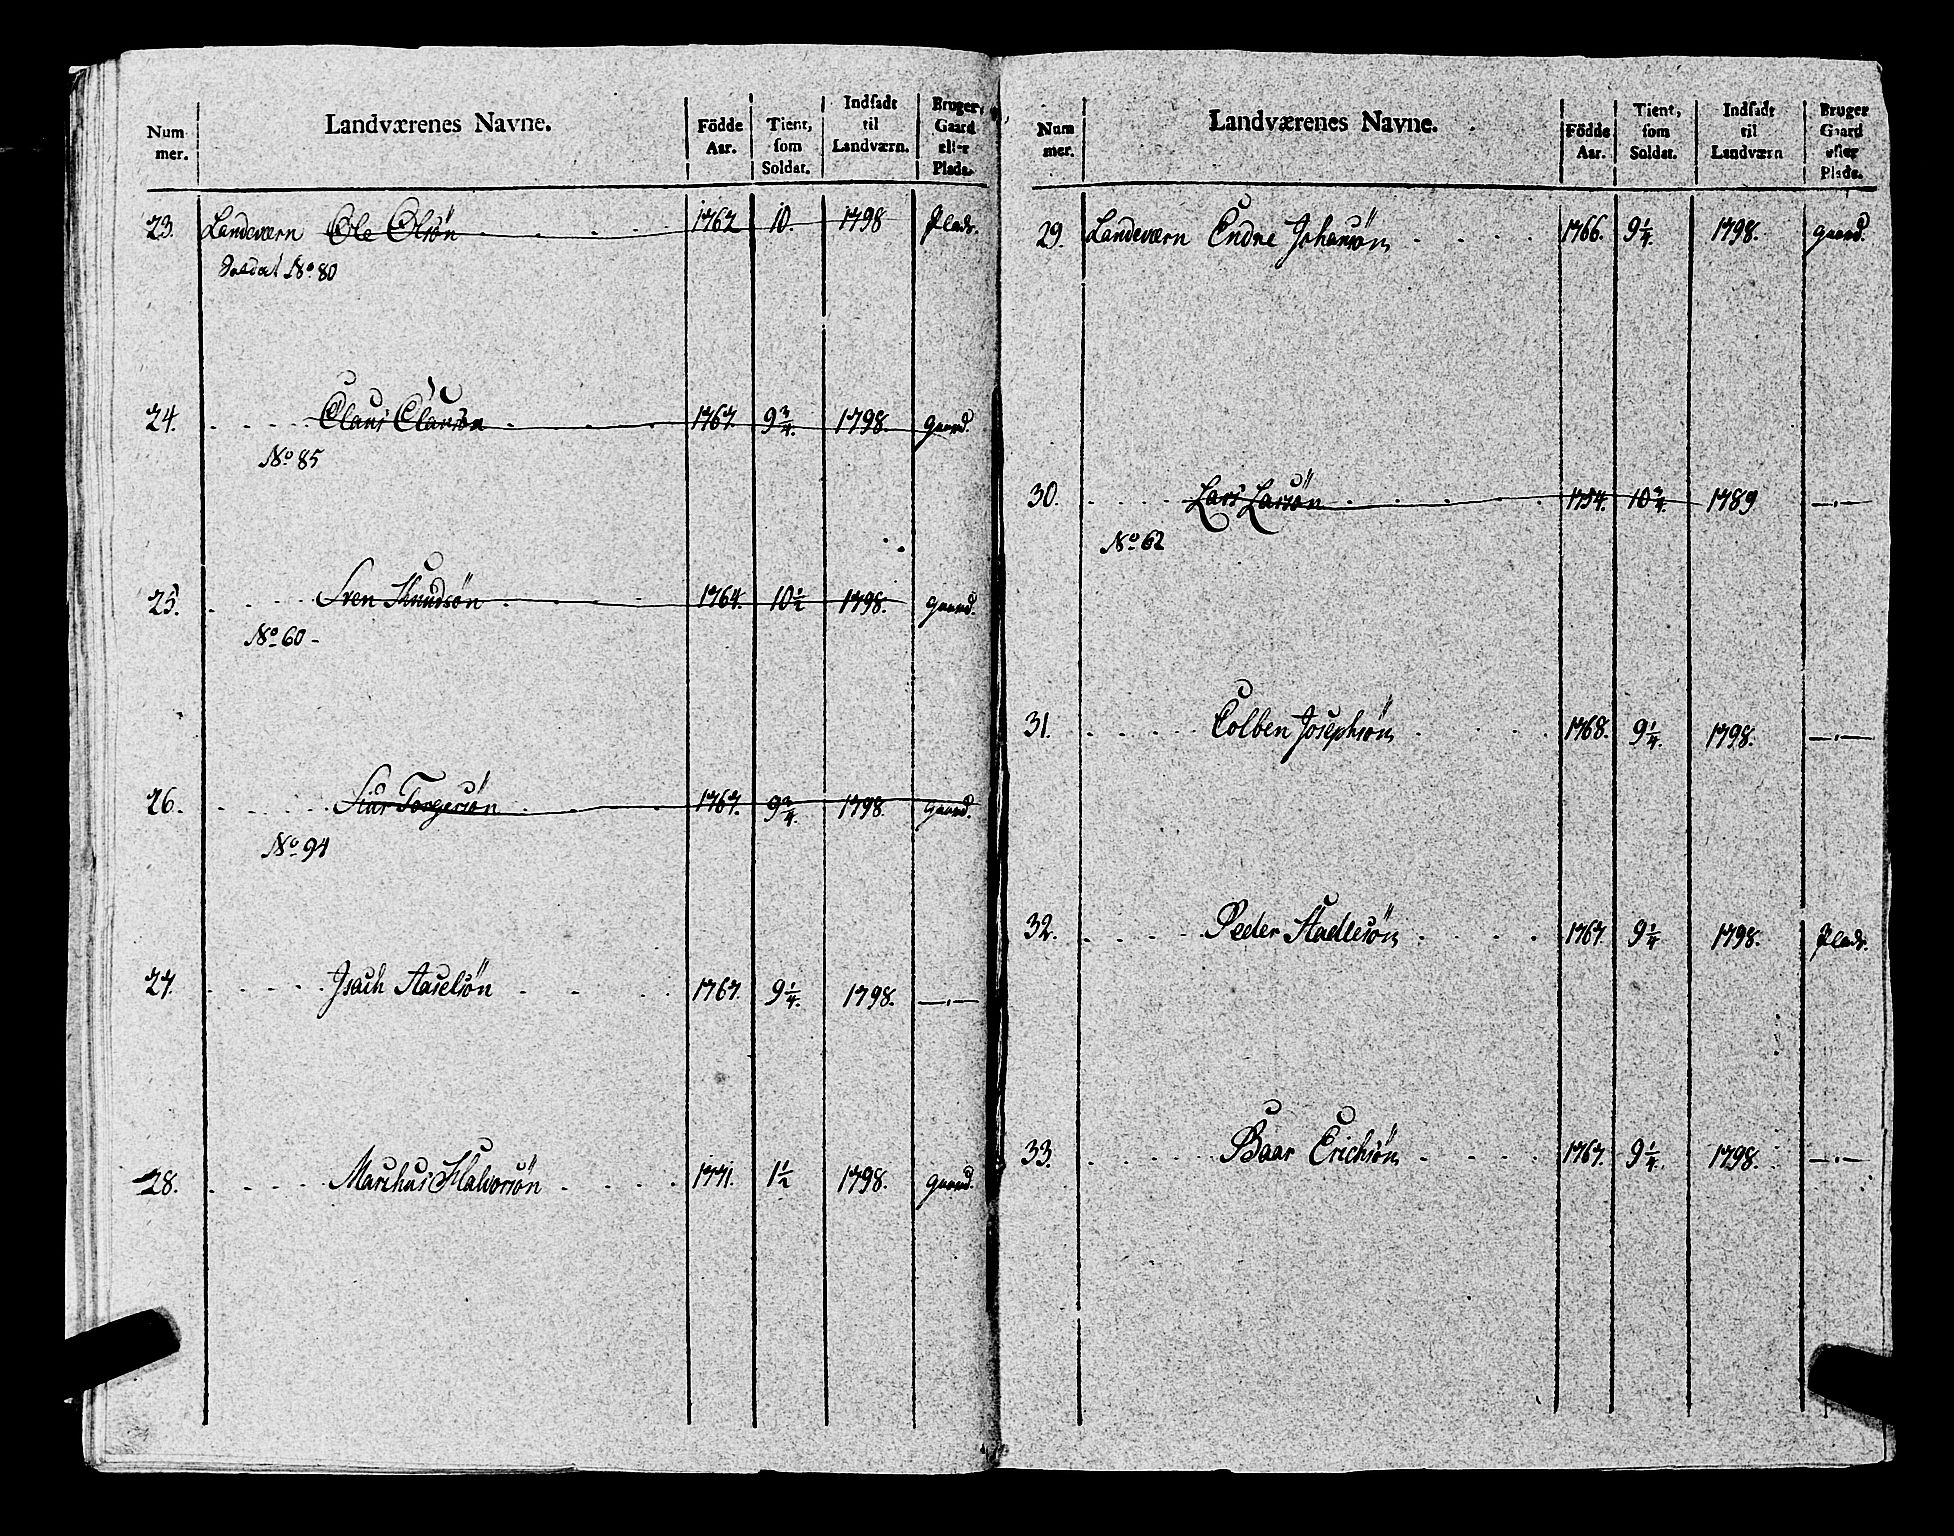 Num mer. | Landværenes Navne. | Födde Aar. | Tient, som Soldat. | Indsadt til Landværn. | Bruger Gaard eller Plads.
23. Landeværn Ole Olsön 1762 10. 1798 Plads.
Soldat No 80
24. Claus Clausön 1767. 9 3/4. 1798. Gaard.
No 85
25. Sven Knudsön 1764. 10 1/2 1798. Gaard.
No 60 -
26. Siur Torgersön 1767. 9 3/4. 1798. Gaard.
No 94
27. Isach Aaselsön 1767. 9 1/4. 1798. —·—
28. Marchus Halvorsön 1771. 1 1/2 1798. Gaard.
Num mer. | Landværenes Navne. | Födde Aar. | Tient, som Soldat. | Indsadt til Landværn | Bruger Gaard eller Plads.
29. Landeværn Endre Johansön 1766. 9 1/4. 1798. Gaard.
30. Lars Larsön 1754. 10 3/4. 1789 —·—
No 62
31. Colben Josephsön 1768. 9 1/4. 1798. —·—
32. Peder Hadlesön 1767. 9 1/4 1798. Plads.
33. Baar Erichsön 1767. 9 1/4. 1798. —·—